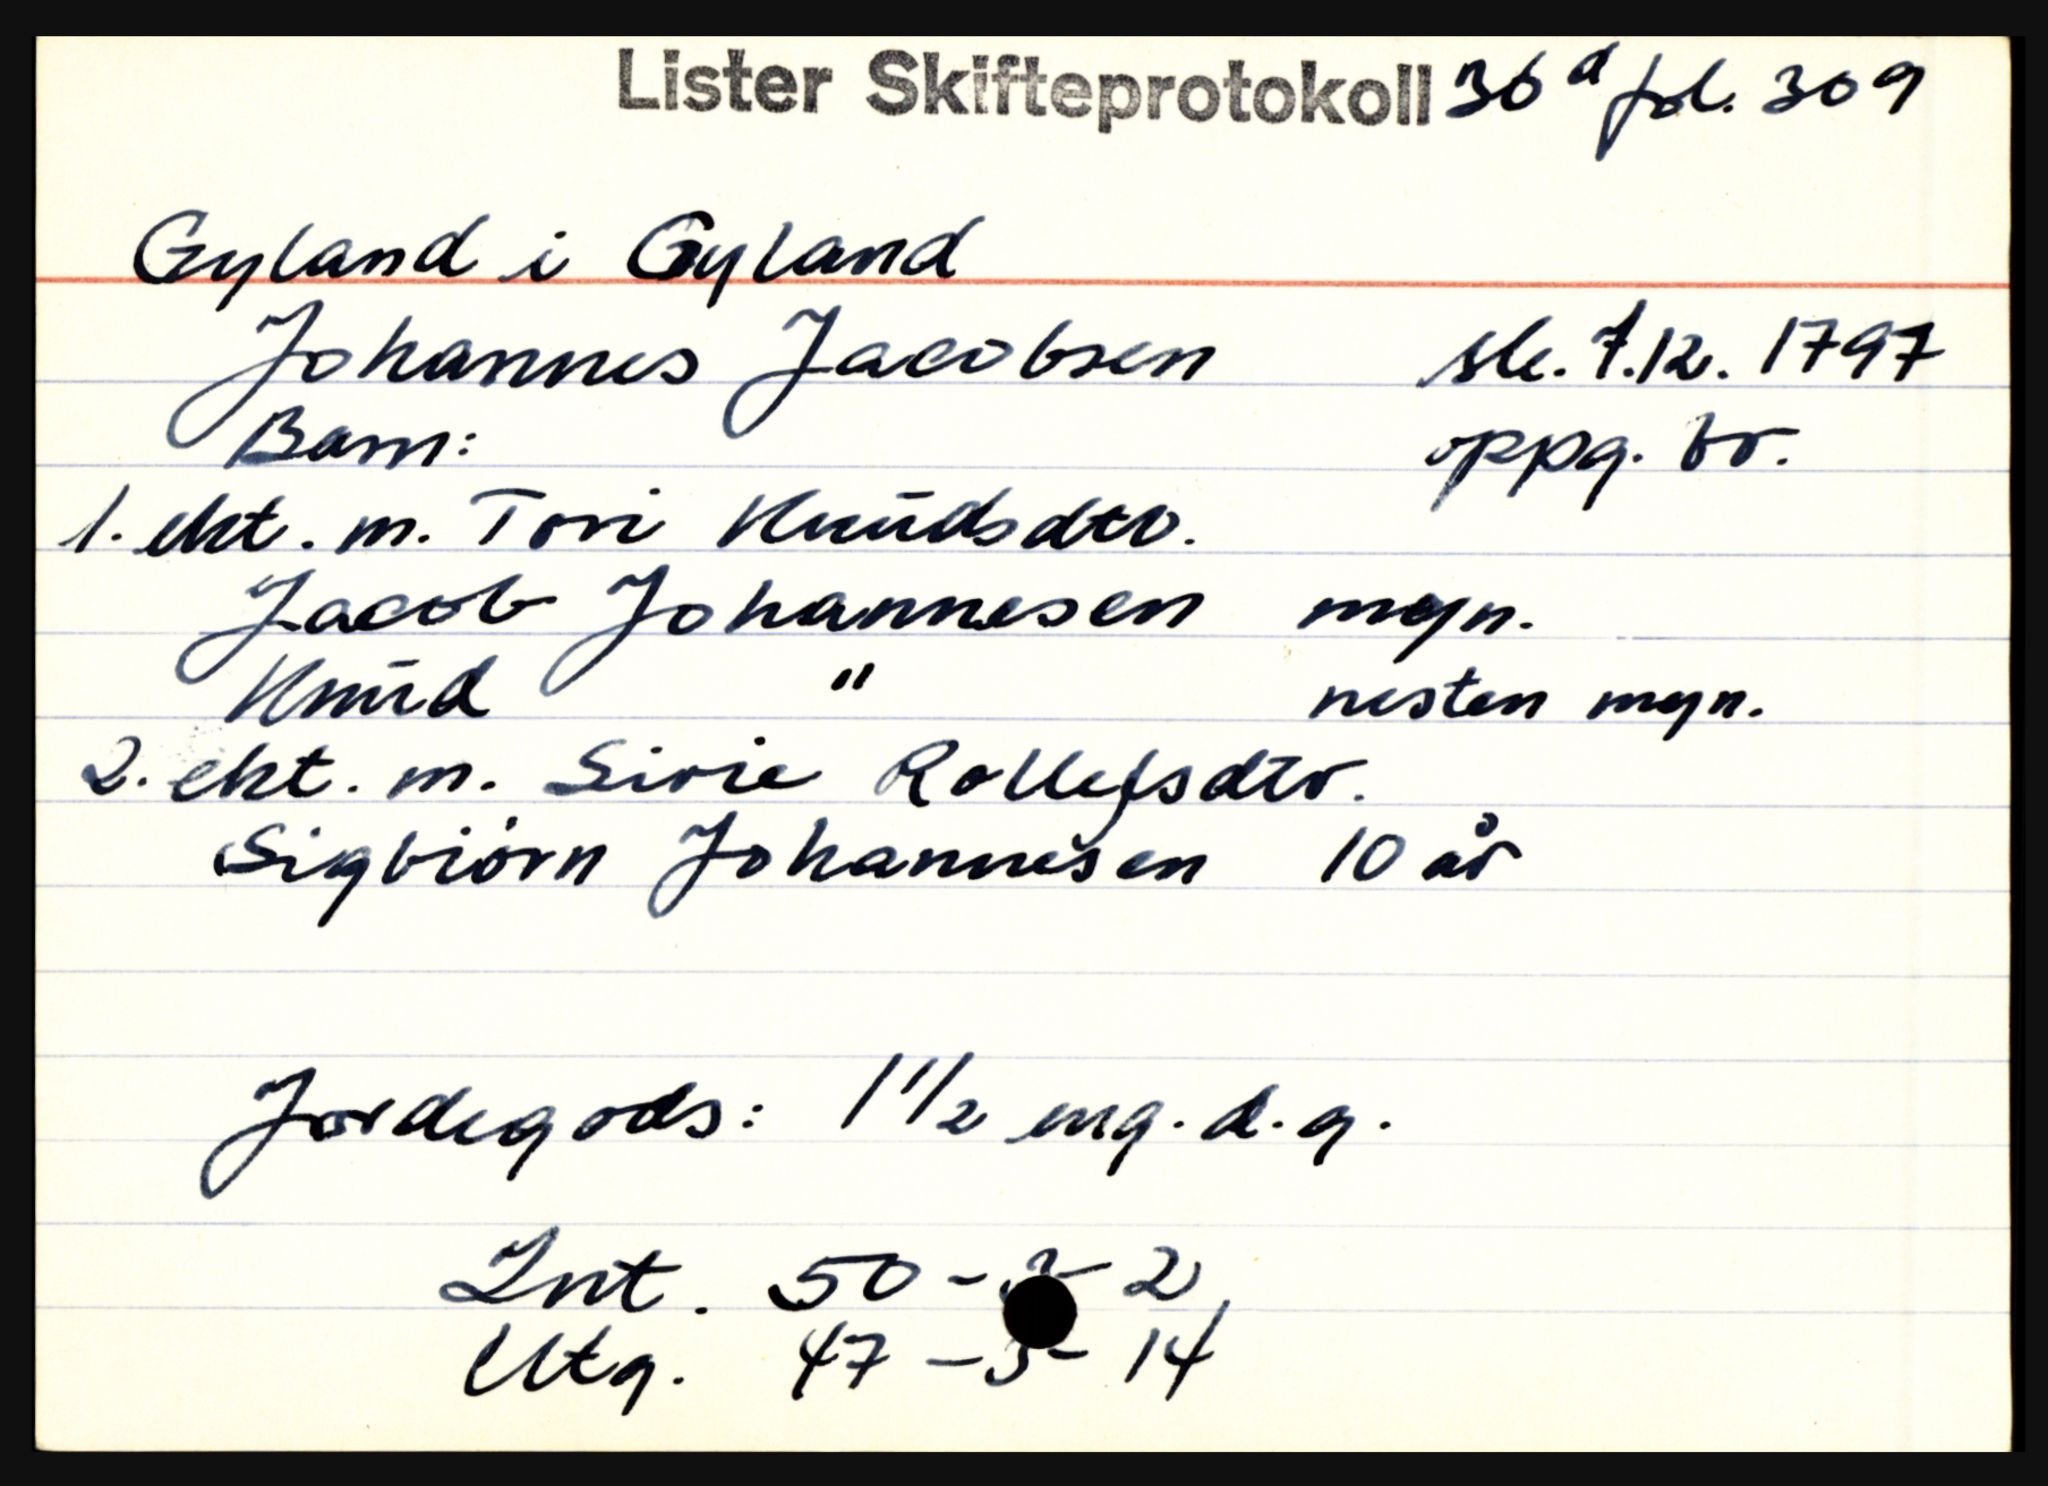 Lister Skifteprotokoll 36a fol. 309
Gyland i Gyland
Johannes Jacobsen sle. 7.12. 1797
Barn: oppg. br.
1. ekt. m. Tori Knūdsdtr.
Jacob Johannesen myn.
Knūd " nesten myn.
2. ekt. m. Sirie Rollefsdtr.
Sigbiörn Johannesen 10 år
Jordegods: 1 1/2 eng. d. g.
Int. 50 - 3 - 2
Utg. 47 - 3 - 14